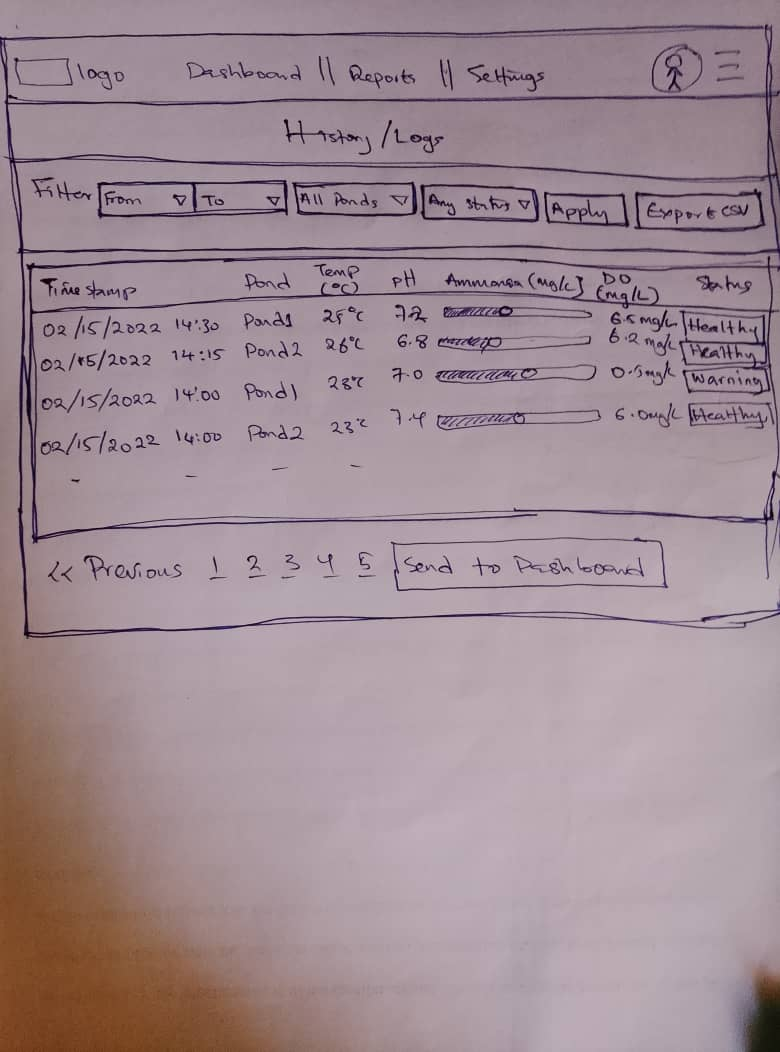 logo Dashboard || Reports || Settings
History/Logs
Filter From To All Ponds Any Status Apply Export CSV
Timestamp Pond Temp (°C) pH Ammonia (mg/L) DO (mg/L) Status
02/15/2022 14:30 Pond1 25°C 7.2 6.5 mg/L Healthy
02/15/2022 14:15 Pond2 26°C 6.8 6.2 mg/L Healthy
02/15/2022 14:00 Pond1 23°C 7.0 0.5mg/L Warning
02/15/2022 14:00 Pond2 23°C 7.4 6.0mg/L Healthy
- - - -
<< Previous 1 2 3 4 5 Send to Dashboard